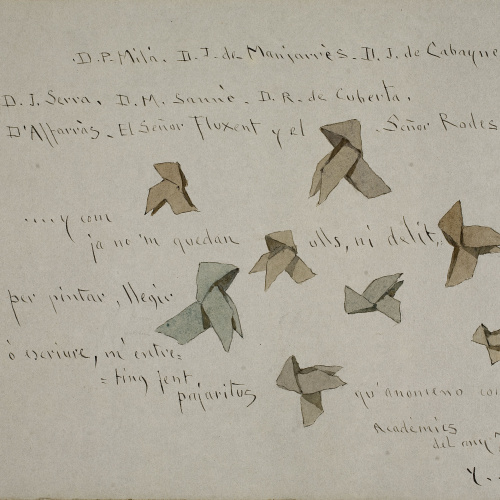 .D.P. Milá. D.J. de Manjarrès. D.J. de Cabaynes
D.J. Serra. D.M. Sannè. D.R. de Cuberta.
D'Alfarràs. El Señor Fluxent y el Señor Rodes
....y com
ja no 'm quedan ulls, ni delit,
per pintar, llegir
ò escriure, m' entre=
=ting fent
pajaritus qu' anomeno
Acadèmics
del any